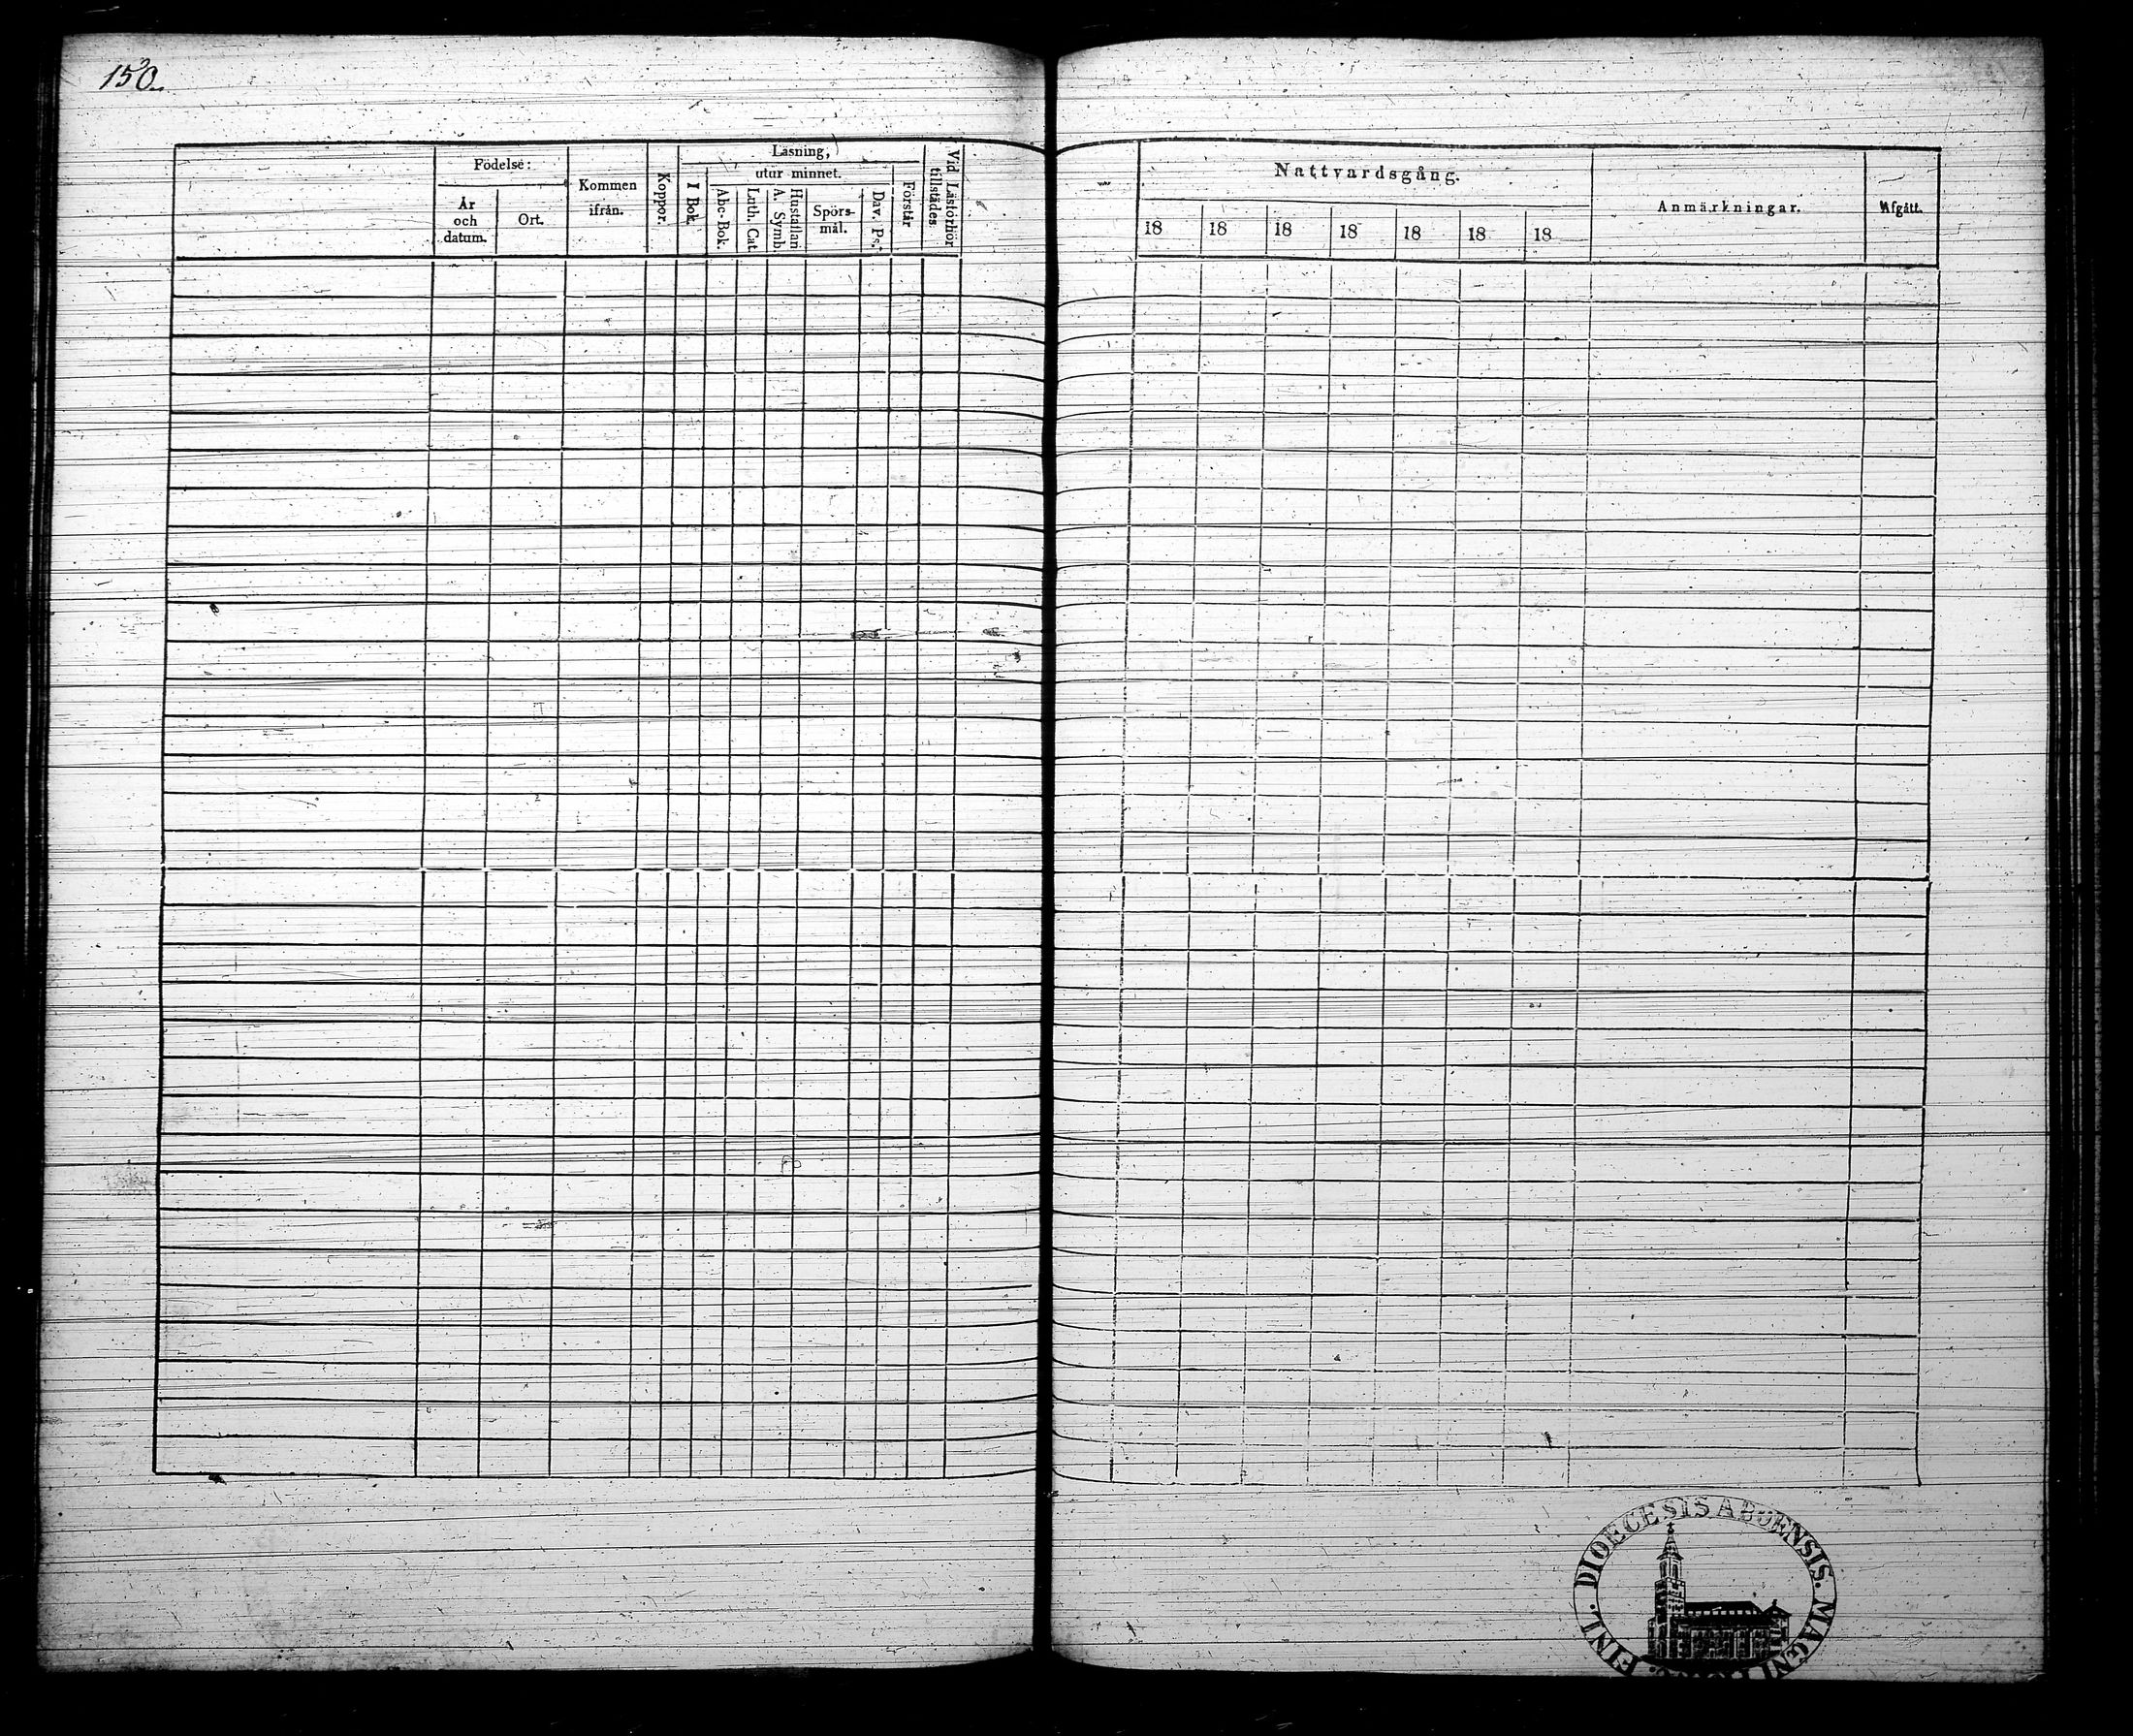 150.
Födelse:
År
och
datum.
Ort.
Kommen
ifrån.
Koppor.
Läsning,
utur minnet.
I Bok.
Abc-Bok.
Luth. Cat.
Hustaflan
A. Symb.
Spörs-
mål.
Dav. Ps.
Förstår
Vid Läsförhör
tillstädes
Nattvardsgång.
18 18 18 18 18 18 18
Anmärkningar.
Afgått.
FINL. DIOECESIS ABOENSIS. MAGNI